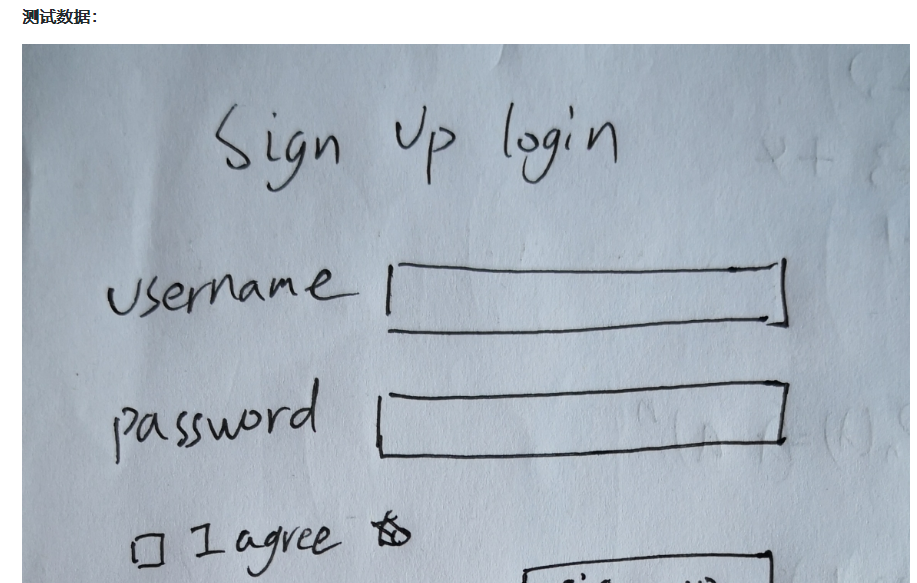 测试数据:
Sign Up login
username
password
I agree